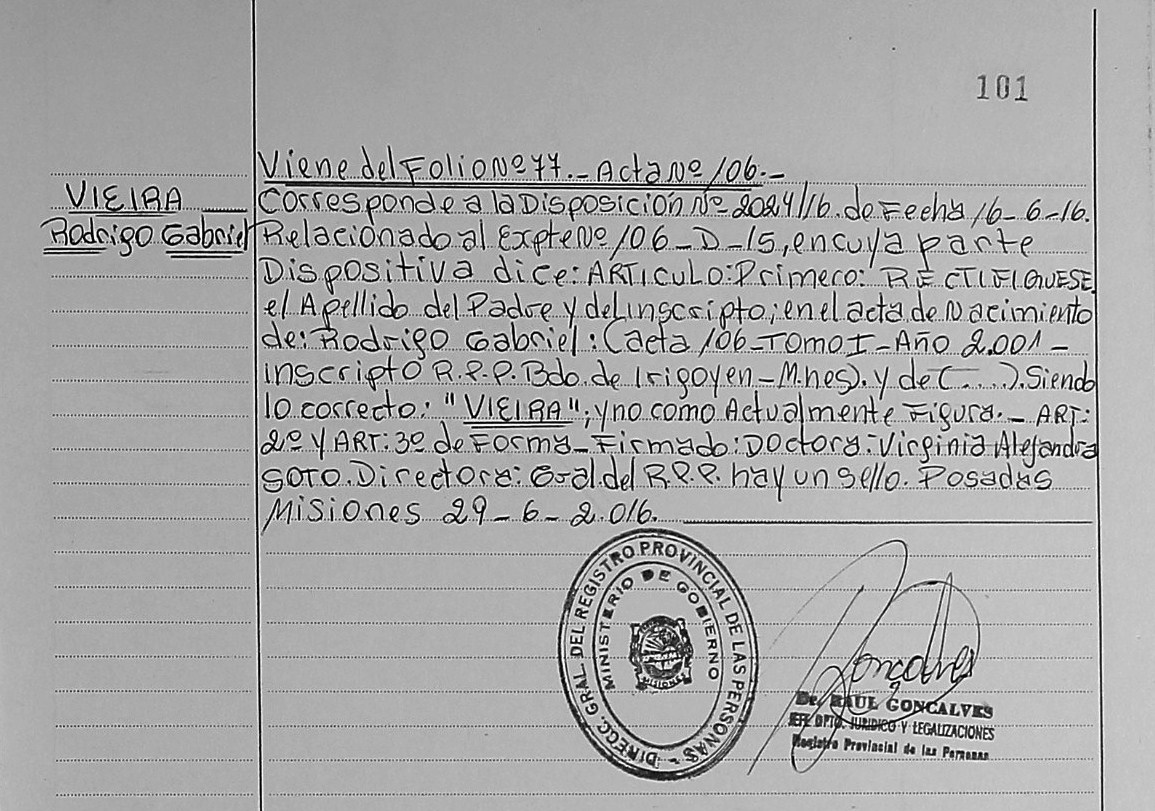 101
Viene del Folio Nº 77.- Acta Nº 106.-
VIEIRA
Rodrigo Gabriel
Corresponde a la Disposición Nº 2024/16. de Fecha 16-6-16.
Relacionado al Expte Nº 106-D-15, en cuya parte
Dispositiva dice: ARTICULO: Primero: RECTIFIQUESE
el Apellido del Padre y del inscripto; en el acta de Nacimiento
de: Rodrigo Gabriel: (acta 106-TOMO I-Año 2.001-
inscripto R.P.P. Bdo. de Irigoyen-Mnes). y de (.....). Siendo
lo correcto: "VIEIRA"; y no como Actualmente Figura.- ART:
2º Y ART: 3º de Forma- Firmado: Doctora: Virginia Alejandra
SOTO. Directora: Gral. del R.P.P. hay un sello. Posadas
Misiones 29-6-2.016.
DIRECC. GRAL. DEL REGISTRO PROVINCIAL DE LAS PERSONAS -
MINISTERIO DE GOBIERNO
MISIONES
Goncalves
Dr. RAUL GONCALVES
JEFE DPTO. JURIDICO Y LEGALIZACIONES
Registro Provincial de las Personas